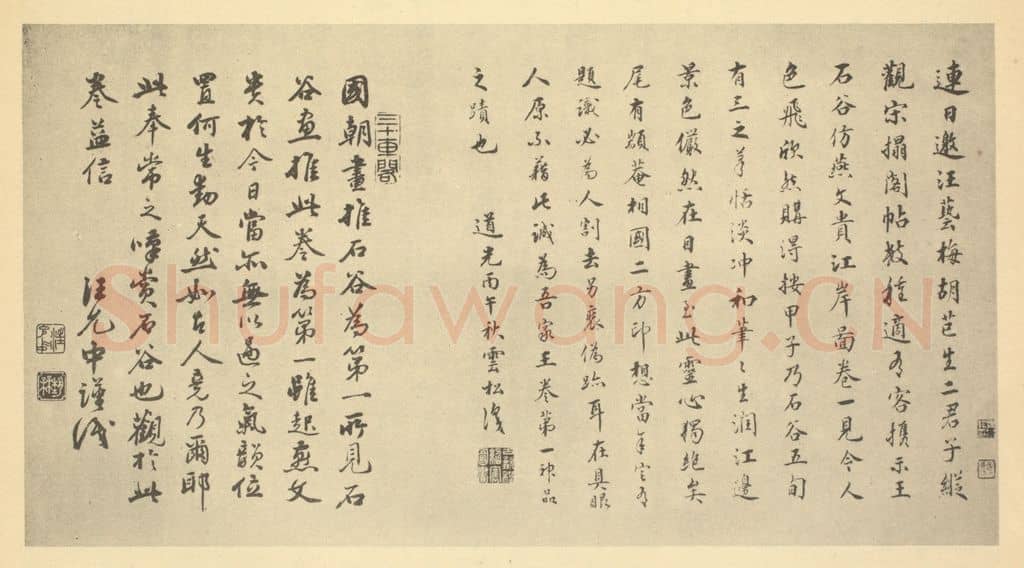 連日邀汪藝梅胡芑生二君子縱
觀宋搨閣帖數種適有客攜示王
石谷仿燕文貴江岸圖卷一見令人
色飛欣然購得按甲子乃石谷五旬
有三之年恬淡冲和筆〻生潤江邊
景色儼然在目畫至此靈心獨絕矣
尾有頵菴相國二方印想當年定有
題識必為人割去另裝偽跡耳在具眼
人原不藉此誠為吾家王卷第一神品
之蹟也
道光丙午秋雲松識
三十車閣
國朝畫推石谷為第一所見石
谷画推此卷為第一雖起燕文
贵於今日當亦無以過之氣韻位
置何生動天然如古人竟乃爾耶
此奉常之嘆賞石谷也觀於此
卷益信
汪允中謹識
Shufawang.CN